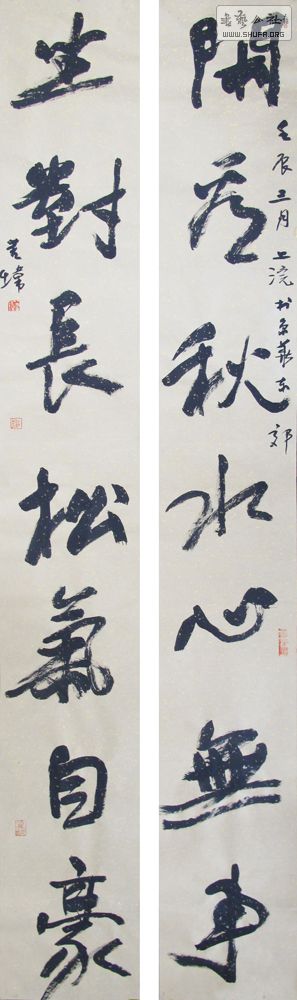 書藝公社
WWW.SHUFA.ORG
閒看秋水心無事
壬辰三月上浣於京華東郊
坐對長松氣自豪